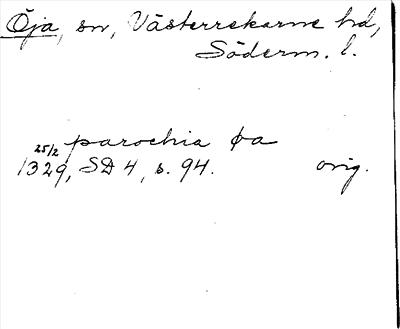 Öja, sn, Västerrekarne hd,
Söderm. l.
parochia øa
25/2 1329, SD 4, s. 94. orig.